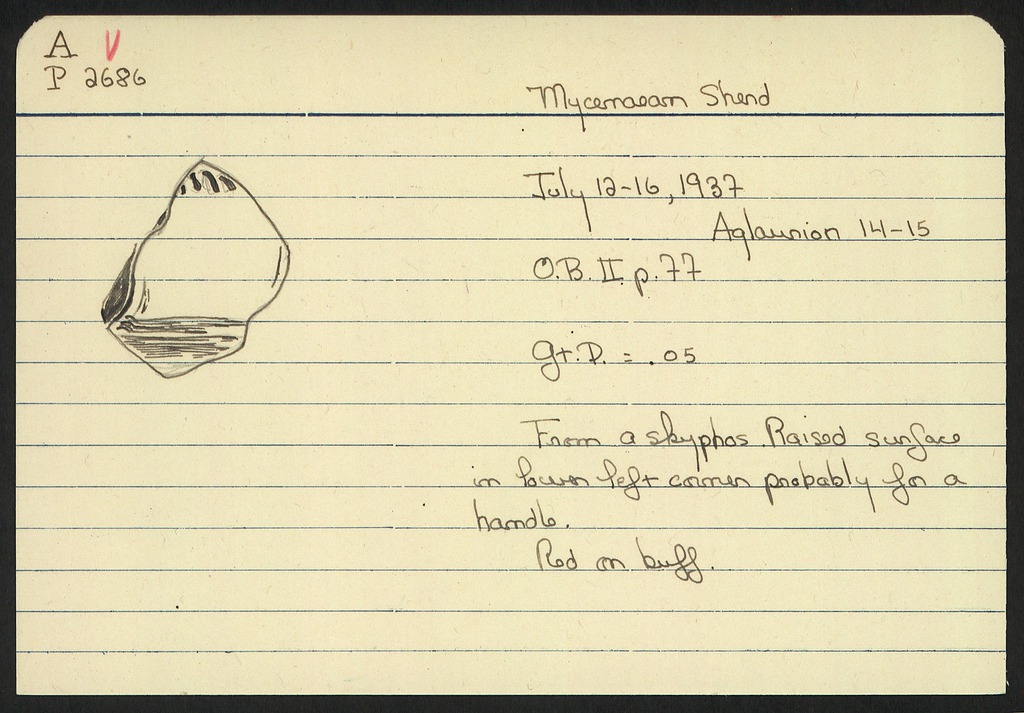 A V
P 2686
Mycenaean Sherd
July 12-16, 1937
Aglaurion 14-15
O.B. II p. 77
Gt. D. = .05
From a skyphos. Raised surface
in lower left corner probably for a
handle.
Red on buff.